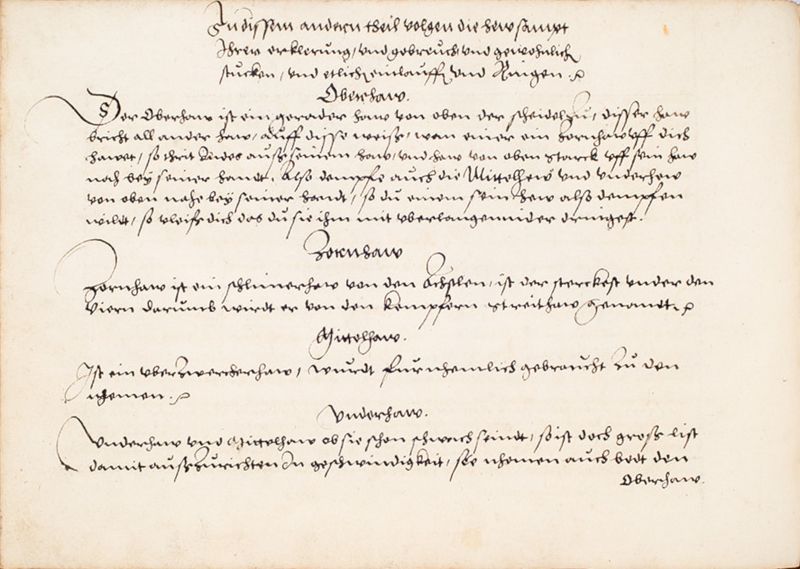 In dissem andern theil volgen die hew sampt
Ihrer erklerung, vnd gebreuch vnd gewohnlich
stucken, vnd etlich einlauff vnd Ringen.
Oberhaw.
Der Oberhaw ist ein gerader haw von oben der scheidel zu, disser haw
bricht all ander haw, auff disse weiss, wan einer ein zornhaw vff dich
hawet, so thrit zu aus seinem haw, vnd haw von oben starck vff sein haw
nah bey seiner handt. Also dempfe auch die Mittelhew vnd vnderhew
von oben nahe bey seiner handt, so du einem sein hew also dempfen
wildt, so vleiss dich das du sie ihm mit vberlangen nider dringest.
Zornhaw
Zornhaw ist ein schlimerhaw von den Achslen, ist der sterckest vnder den
Viern darumb wirdt er von den Kempfern streithaw genandt.
Mittelhaw.
Ist ein vberzwercherhaw, wurdt furnhemlich gebraucht zu den
nhemen.
Vnderhaw.
Vnderhaw vnd Mittelhaw ob sie schon schwach seindt, so ist doch gross list
damit ausszurichten In geschwindigkeit, sie nhemen auch bedt den
Oberhaw.